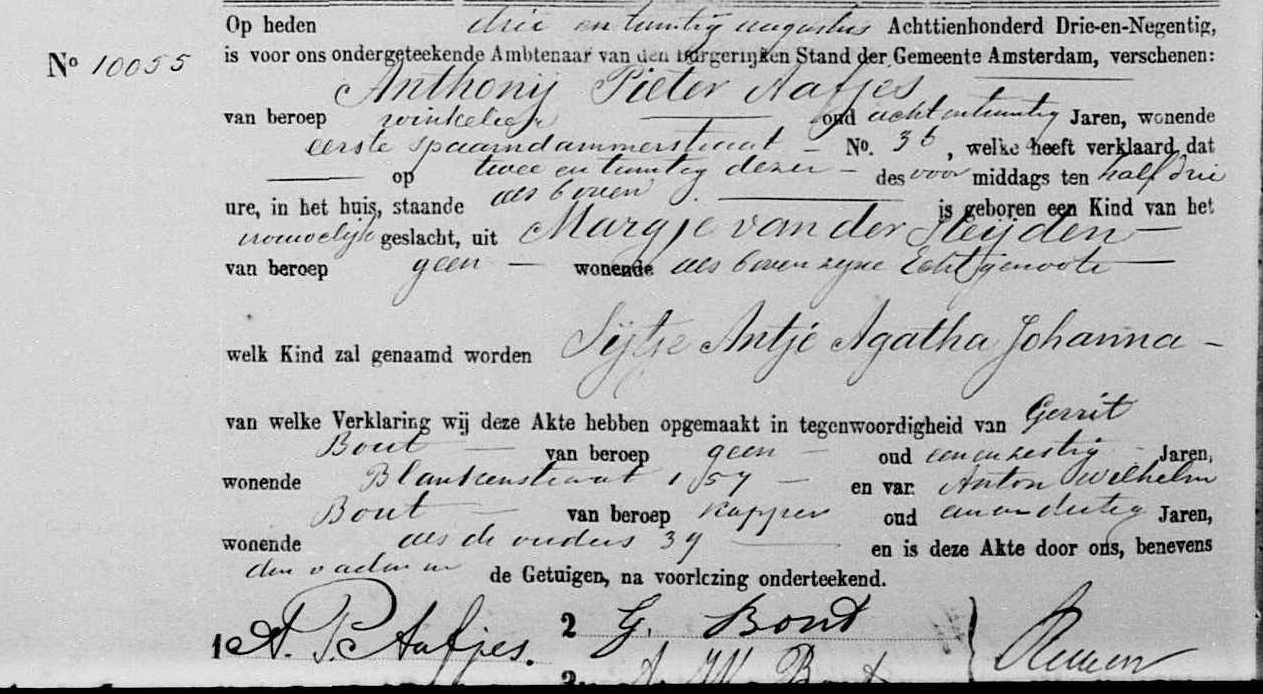 Op heden drie en twintig augustus Achttienhonderd Drie-en-Negentig,
No 10055 is voor ons ondergeteekende Ambtenaar van den Burgerlijken Stand der Gemeente Amsterdam, verschenen:
Anthonij Pieter Aafjes
van beroep winkelier oud achtentwintig Jaren, wonende
eerste Spaarndammerstraat No. 36, welke heeft verklaard dat
op twee en twintig dezer des voor middags ten half drie
ure, in het huis, staande als boven is geboren een Kind van het
vrouwelijk geslacht, uit Margje van der Heijden
van beroep geen wonende als boven zijne Echtgenoote
welk Kind zal genaamd worden Sijtje Antje Agatha Johanna
van welke Verklaring wij deze Akte hebben opgemaakt in tegenwoordigheid van Gerrit
Bout van beroep geen oud eenenzestig Jaren,
wonende Blankenstraat 157 en van Anton Wilhelm
Bout van beroep kapper oud eenendertig Jaren,
wonende als de ouders 39 en is deze Akte door ons, benevens
den vader en de Getuigen, na voorlezing onderteekend.
1 A. P. Aafjes. 2 G. Bout
3 A. W. Bout